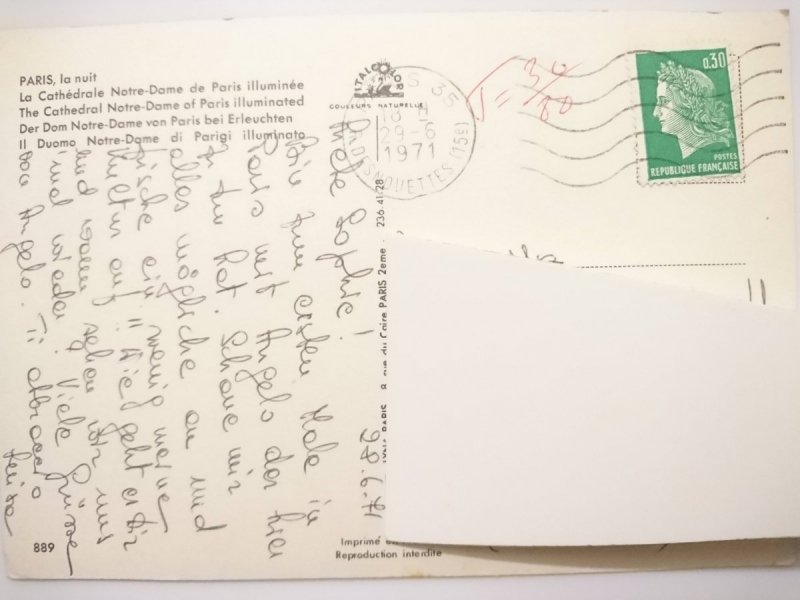 PARIS, la nuit
La Cathédrale Notre-Dame de Paris illuminée
The Cathedral Notre-Dame of Paris illuminated
Der Dom Notre-Dame von Paris bei Erleuchten
Il Duomo Notre-Dame di Parigi illuminato
ITALCOLOR
COULEURS NATURELLES
S 35
18 H
29-6
1971
(15e)
0,30
POSTES
REPUBLIQUE FRANÇAISE
28.6.71
Liebe Sophie!
Bin zum ersten Male in
Paris mit Angelo der hier
zu tun hat. Schaue mir
alles mögliche an und
frische ein wenig meine
auf!! Wie geht es Dir
und wann sehen wir uns
mal wieder? Viele Grüsse
von Angelo. Ti abbraccio
Luisa
8, rue du Caire PARIS 2eme - 236-41-28
889
Imprimé en
Reproduction interdite